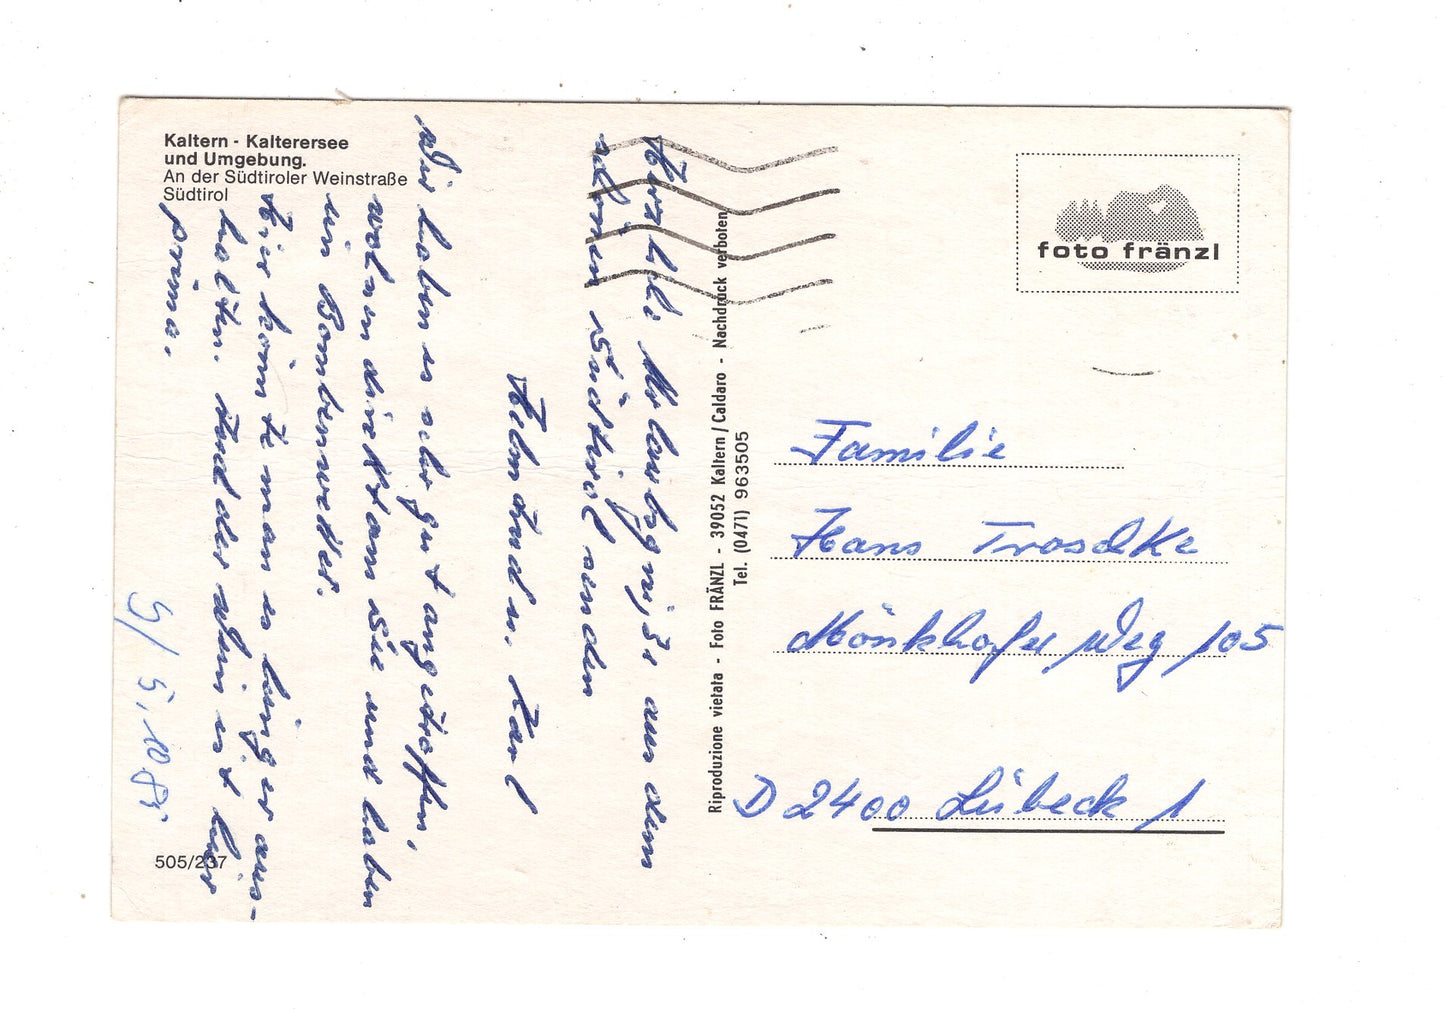 Kaltern - Kalterersee
und Umgebung.
An der Südtiroler Weinstraße
Südtirol
Herzliche Urlaubsgrüße aus dem
schönen Südtirol senden
Helm und u. Karl
Wir haben es sehr gut angetroffen,
wohnen direkt am See und haben
ein Bombenwetter.
Hier könnte man es länger aus-
halten. Und der Wein ist hier
prima.
505/237
Riproduzione vietata - Foto FRÄNZL - 39052 Kaltern / Caldaro - Nachdruck verboten
Tel. (0471) 963505
foto fränzl
Familie
Hans Troschke
Mönkhofer Weg 105
D 2400 Lübeck 1